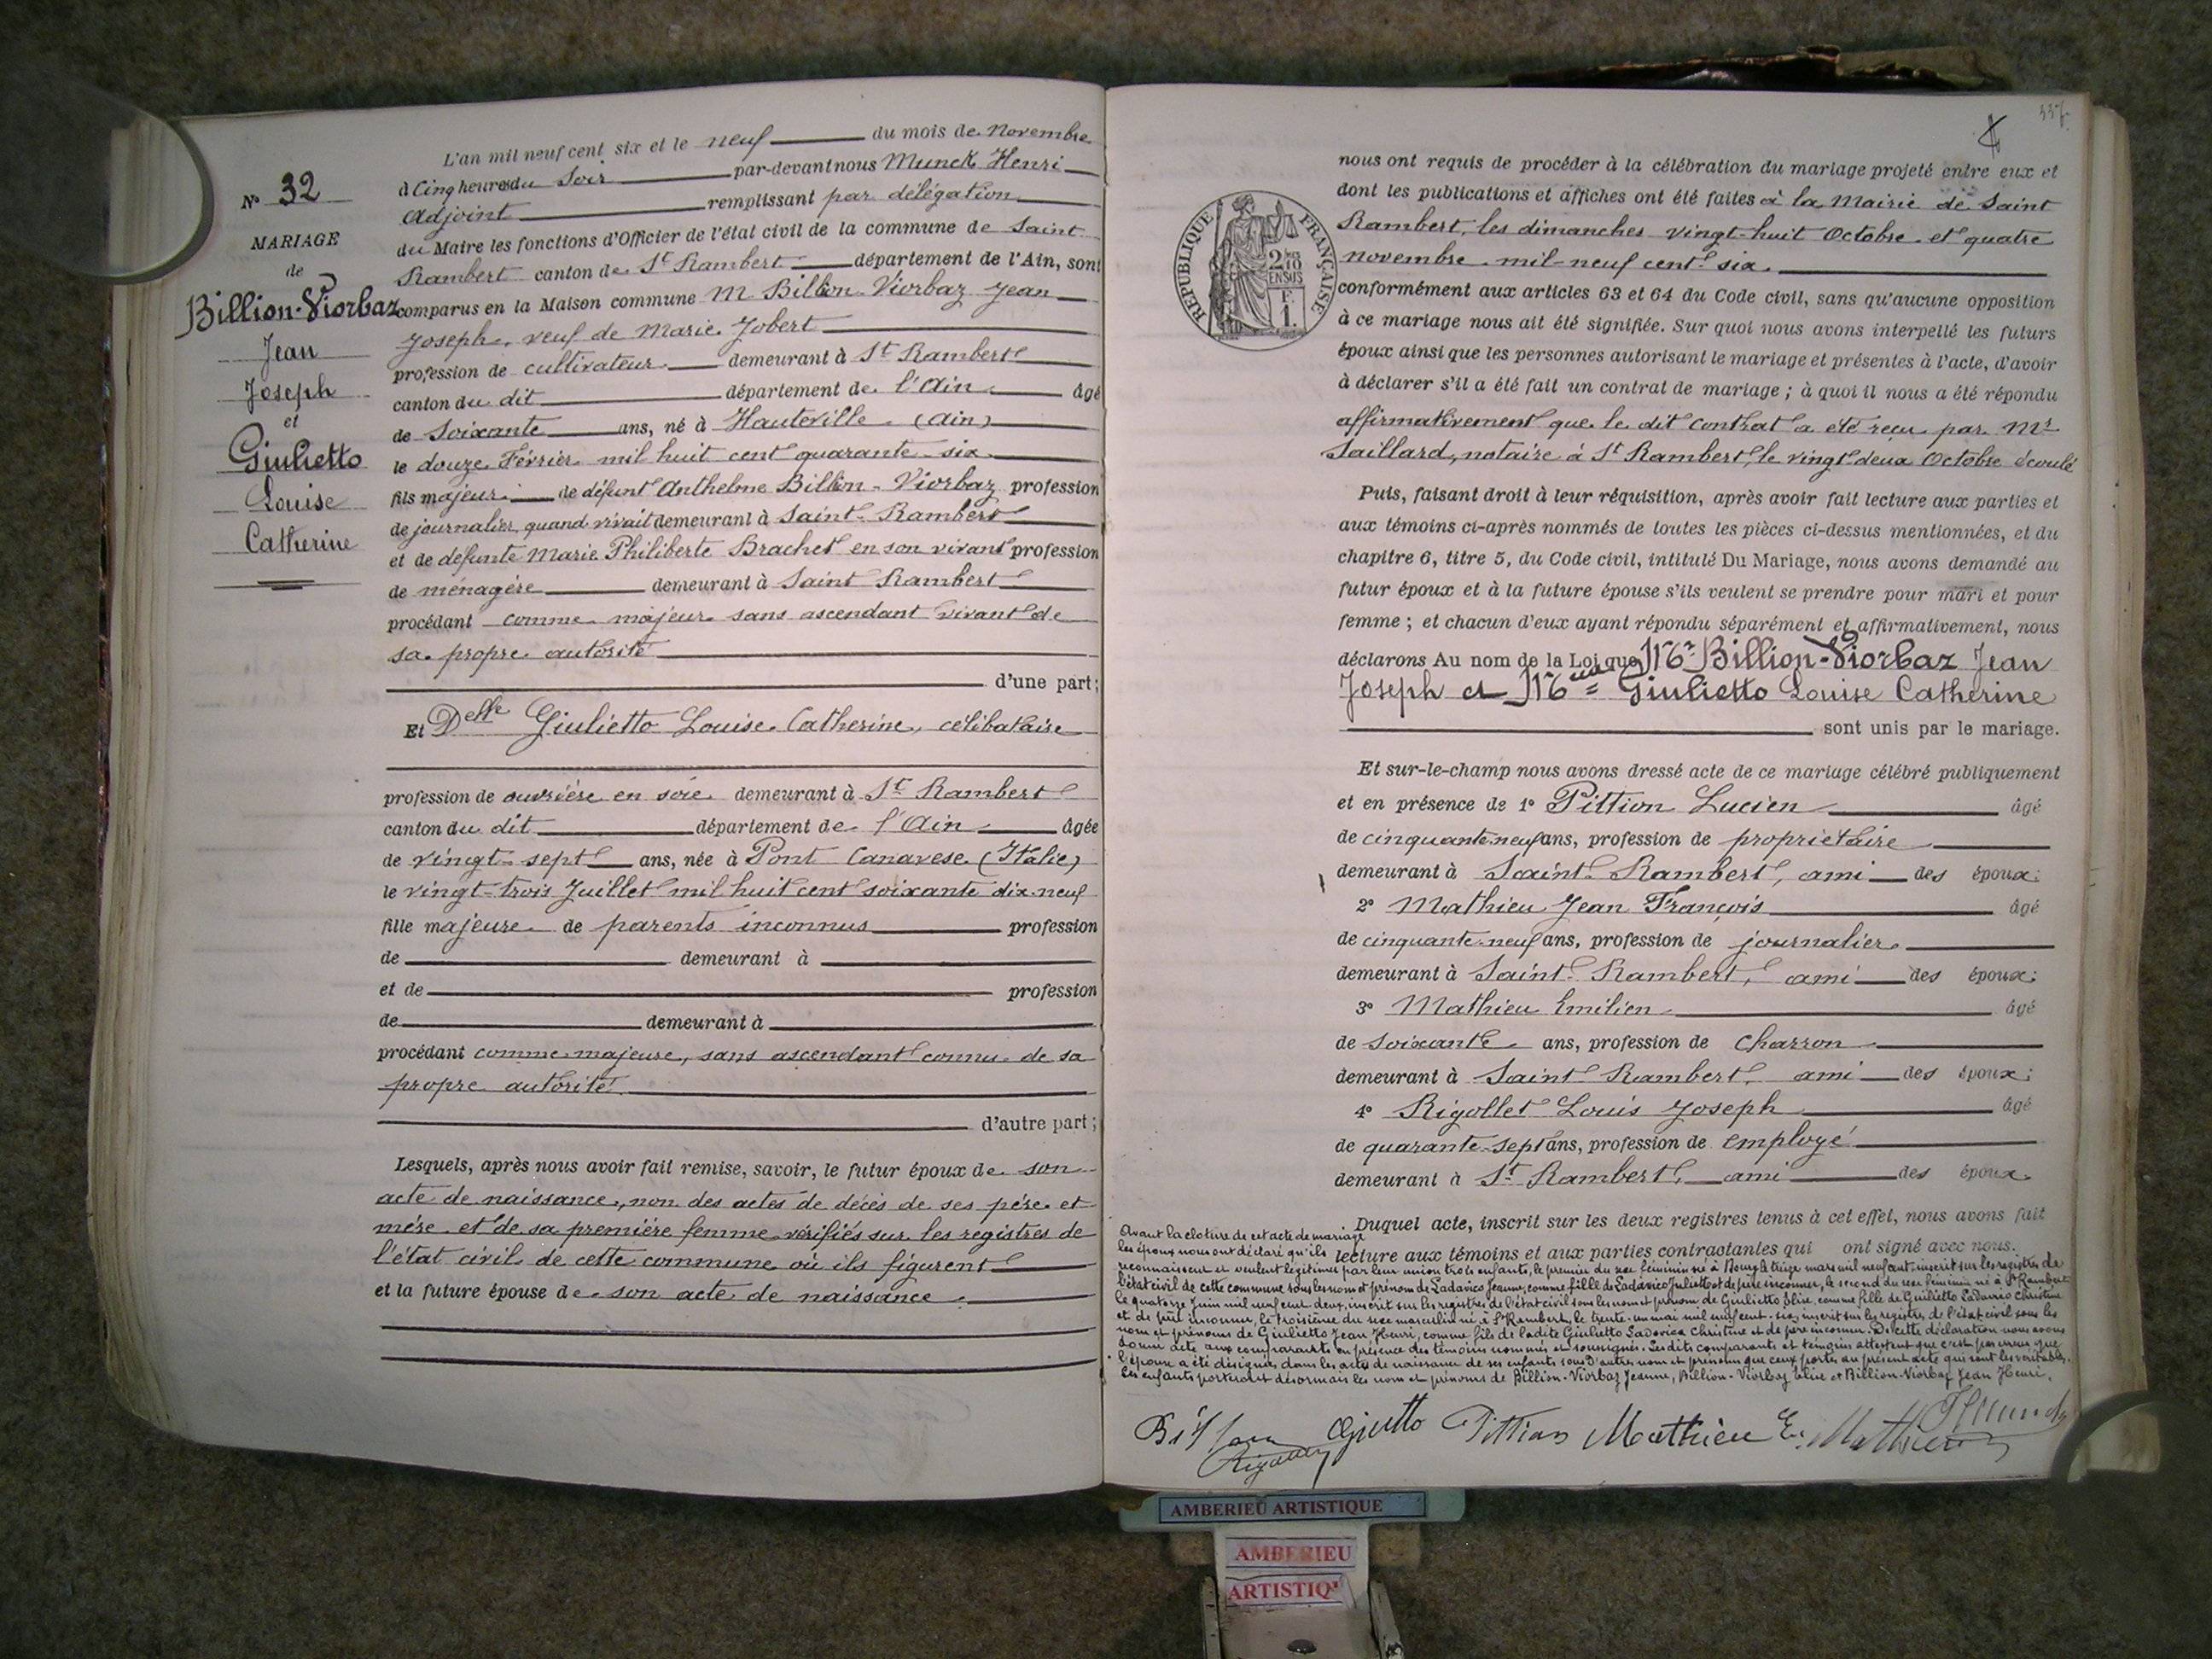 N° 32
MARIAGE
de
Billion-Viorbaz
Jean
Joseph
et
Giulietto
Louise
Catherine
L'an mil neuf cent six et le neuf du mois de Novembre
à Cinq heures du Soir par-devant nous Munck Henri
Adjoint remplissant par délégation
du Maire les fonctions d'Officier de l'état civil de la commune de Saint
Rambert canton de St Rambert département de l'Ain, sont
comparus en la Maison commune M Billion-Viorbaz Jean
Joseph, veuf de Marie Jobert
profession de cultivateur demeurant à St Rambert
canton du dit département de l'Ain âgé
de Soixante ans, né à Hauteville (Ain)
le douze Février mil huit cent quarante-six
fils majeur de défunt Anthelme Billion-Viorbaz profession
de journalier quand vivait demeurant à Saint-Rambert
et de défunte Marie Philiberte Brachet en son vivant profession
de ménagère demeurant à Saint Rambert
procédant comme majeur sans ascendant vivant de
sa propre autorité
d'une part;
Et Delle Giulietto Louise Catherine, célibataire
profession de ouvrière en soie demeurant à St Rambert
canton du dit département de l'Ain âgée
de vingt-sept ans, née à Pont Canavese (Italie)
le vingt-trois Juillet mil huit cent soixante dix-neuf
fille majeure de parents inconnus profession
de demeurant à
et de profession
de demeurant à
procédant comme majeure, sans ascendant connu de sa
propre autorité
d'autre part;
Lesquels, après nous avoir fait remise, savoir, le futur époux de son
acte de naissance, non des actes de décès de ses père et
mère et de sa première femme vérifiés sur les registres de
l'état civil de cette commune où ils figurent
et la future épouse de son acte de naissance
337
RÉPUBLIQUE FRANÇAISE
2/10
EN SUS
F.
1.
nous ont requis de procéder à la célébration du mariage projeté entre eux et
dont les publications et affiches ont été faites à la Mairie de Saint
Rambert, les dimanches vingt-huit Octobre et quatre
novembre mil neuf cent six
conformément aux articles 63 et 64 du Code civil, sans qu'aucune opposition
à ce mariage nous ait été signifiée. Sur quoi nous avons interpellé les futurs
époux ainsi que les personnes autorisant le mariage et présentes à l'acte, d'avoir
à déclarer s'il a été fait un contrat de mariage ; à quoi il nous a été répondu
affirmativement que le dit contrat a été reçu par Mr
Saillard, notaire à St Rambert, le vingt-deux Octobre écoulé
Puis, faisant droit à leur réquisition, après avoir fait lecture aux parties et
aux témoins ci-après nommés de toutes les pièces ci-dessus mentionnées, et du
chapitre 6, titre 5, du Code civil, intitulé Du Mariage, nous avons demandé au
futur époux et à la future épouse s'ils veulent se prendre pour mari et pour
femme ; et chacun d'eux ayant répondu séparément et affirmativement, nous
déclarons Au nom de la Loi que Mr Billion-Viorbaz Jean
Joseph et Giulietto Louise Catherine
sont unis par le mariage.
Et sur-le-champ nous avons dressé acte de ce mariage célébré publiquement
et en présence de 1° Pittion Lucien âgé
de cinquante-neuf ans, profession de propriétaire
demeurant à Saint-Rambert, ami des époux;
2° Mathieu Jean François âgé
de cinquante-neuf ans, profession de journalier
demeurant à Saint-Rambert, ami des époux;
3° Mathieu Emilien âgé
de soixante ans, profession de charron
demeurant à Saint-Rambert, ami des époux;
4° Rigollet Louis Joseph âgé
de quarante-sept ans, profession de employé
demeurant à St Rambert, ami des époux
Duquel acte, inscrit sur les deux registres tenus à cet effet, nous avons fait
lecture aux témoins et aux parties contractantes qui ont signé avec nous.
Avant la cloture de cet acte de mariage
les époux nous ont déclaré qu'ils
reconnaissent et veulent légitimer par leur union trois enfants, le premier du sexe féminin né à Bourg le treize mars mil neuf cent inscrit sur les registres de
l'état civil de cette commune sous les nom et prénom de Ladavico Jeanne, comme fille de Ladavico Juliette et de père inconnu, le second du sexe féminin né à St Rambert
le quatorze Juin mil neuf cent deux, inscrit sur les registres de l'état civil sous les nom et prénom de Giulietto Elise, comme fille de Giulietto Ladavico Christine
et de père inconnu, le troisième du sexe masculin né à St Rambert, le trente-un mai mil neuf cent-six, inscrit sur les registres de l'état civil sous les
nom et prénoms de Giulietto Jean Henri, comme fils de ladite Giulietto Ladovica Christine et de père inconnu. De cette déclaration nous avons
donné acte aux comparants en présence des témoins nommés et soussignés. Les dits comparants et témoins attestent que c'est par erreur que
l'épouse a été désignée dans les actes de naissance de ses enfants sous d'autres nom et prénoms que ceux portés au présent acte qui sont les véritables.
Les enfants porteront désormais les nom et prénoms de Billion-Viorbaz Jeanne, Billion-Viorbaz Elise et Billion-Viorbaz Jean Henri.
Pittion Mathieu E. Mathieu
AMBERIEU ARTISTIQUE
AMBERIEU
ARTISTIQ